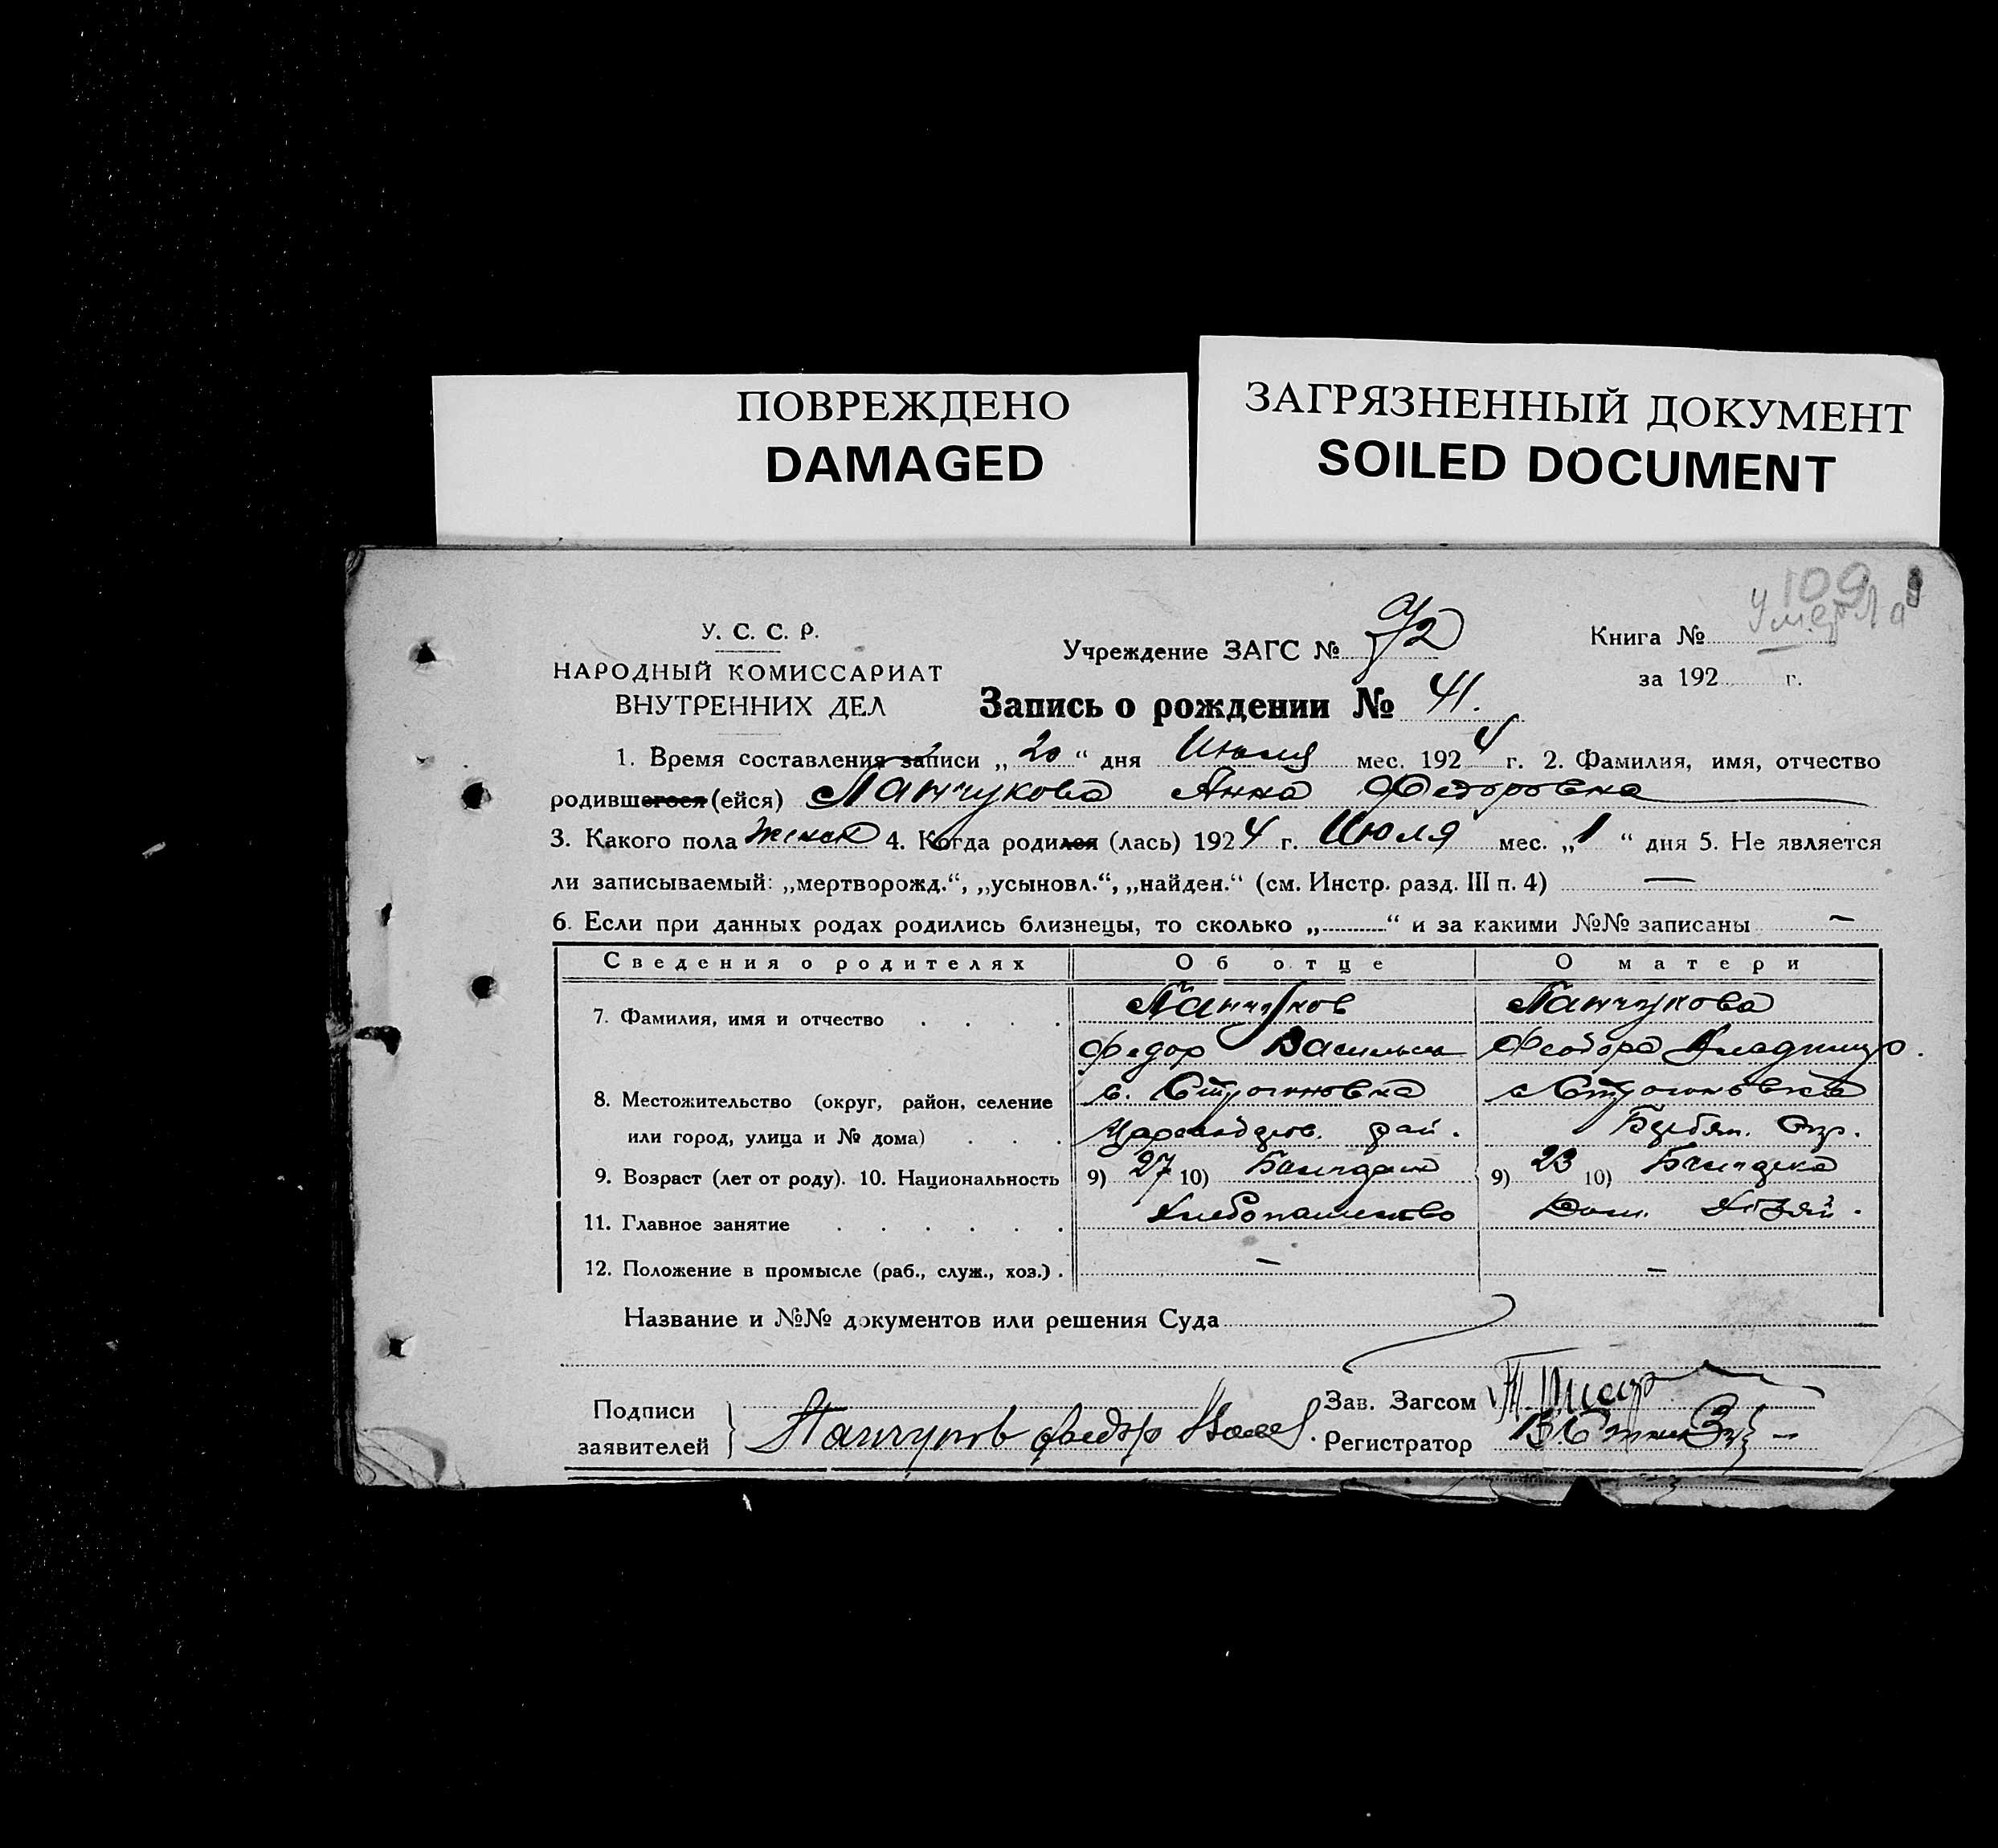 ПОВРЕЖДЕНО
DAMAGED
ЗАГРЯЗНЕННЫЙ ДОКУМЕНТ
SOILED DOCUMENT
109
умерла
У. С. С. Р.
НАРОДНЫЙ КОМИССАРИАТ
ВНУТРЕННИХ ДЕЛ
Учреждение ЗАГС №
Книга №
за 192 г.
Запись о рождении № 41.
1. Время составления записи „20“ дня Июля мес. 1924 г. 2. Фамилия, имя, отчество
родившегося (ейся) Панчукова Анна Федоровна
3. Какого пола женск 4. Когда родился (лась) 1924 г. Июля мес. „1“ дня 5. Не является
ли записываемый: „мертворожд.“, „усыновл.“, „найден.“ (см. Инстр. разд. III п. 4) —
6. Если при данных родах родились близнецы, то сколько „..........“ и за какими №№ записаны —
Сведения о родителях Об отце О матери
7. Фамилия, имя и отчество . . . . Панчуков Панчукова
Федор Васильев Феодора Владимир.
8. Местожительство (округ, район, селение с. Строгоновка с Строгоновка
или город, улица и № дома) . . . рай. Окр.
9. Возраст (лет от роду). 10. Национальность 9) 27 10) 9) 23 10)
11. Главное занятие . . . . . . Хлебопашество Дом. Хозяй.
12. Положение в промысле (раб., служ., хоз.) . — —
Название и №№ документов или решения Суда
Подписи
заявителей } Панчуков Федор Васил.
Зав. Загсом
Регистратор